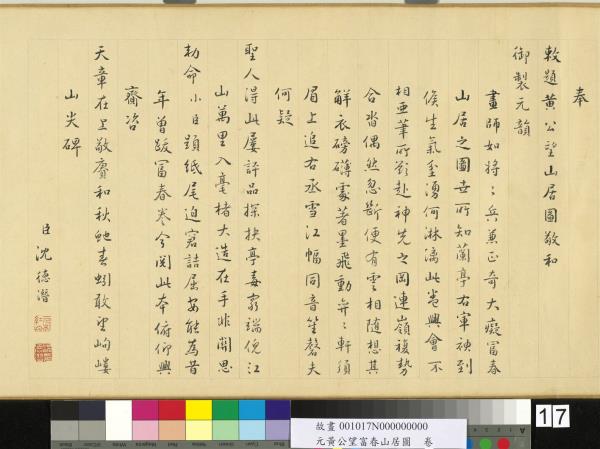 奉
敕題黃公望山居圖敬和
御製元韻
畫師如將〻兵兼正奇大癡富春
山居之圖世所知蘭亭右軍神到
候生氣坌湧何淋漓此卷興會不
相亞筆所欲赴神先之岡連嶺複勢
合沓偶然忽斷便有雲相隨想其
解衣磅礴處著墨飛動弈〻軒須
眉上追右丞雪江幅同音笙磬夫
何疑
聖人得此屢評品探抉亭毒窮端倪江
山萬里入毫楮大造在手非關思
勅命小臣題紙尾迫窘詰屈安能為昔
年曾跋富春卷今閱此本俯仰興
齎咨
天章在上敬賡和秋虵春蚓敢望岣嶁
山尖碑
臣沈德潛
故畫 001017N000000000
元黃公望富春山居圖 卷
17